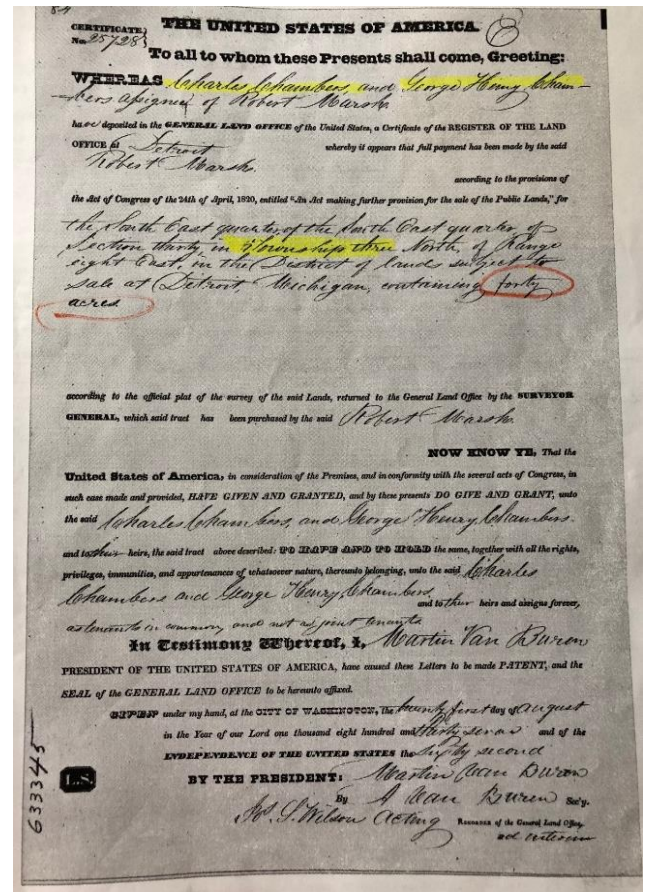 CERTIFICATE THE UNITED STATES OF AMERICA.
No. 25728
To all to whom these Presents shall come, Greeting:
WHEREAS Charles Chambers, and George Henry Cham-
bers assignee of Robert Marsh
have deposited in the GENERAL LAND OFFICE of the United States, a Certificate of the REGISTER OF THE LAND
OFFICE at Detroit whereby it appears that full payment has been made by the said
Robert Marsh.
according to the provisions of
the Act of Congress of the 24th of April, 1820, entitled "An Act making further provision for the sale of the Public Lands," for
the South East quarter, of the South East quarter of
Section thirty in Township three North, of Range
eight East, in the District of lands subject to
sale at Detroit, Michigan, containing forty
acres
according to the official plat of the survey of the said Lands, returned to the General Land Office by the SURVEYOR
GENERAL, which said tract has been purchased by the said Robert Marsh.
NOW KNOW YE, That the
United States of America, in consideration of the Premises, and in conformity with the several acts of Congress, in
such case made and provided, HAVE GIVEN AND GRANTED, and by these presents DO GIVE AND GRANT, unto
the said Charles Chambers, and George Henry Chambers.
and to their heirs, the said tract above described: TO HAVE AND TO HOLD the same, together with all the rights,
privileges, immunities, and appurtenances of whatsoever nature, thereunto belonging, unto the said Charles
Chambers and George Henry Chambers,
and to their heirs and assigns forever,
as tenants in common, and not as joint tenants
In Testimony Whereof, I, Martin Van Buren
PRESIDENT OF THE UNITED STATES OF AMERICA, have caused these Letters to be made PATENT, and the
SEAL of the GENERAL LAND OFFICE to be hereunto affixed.
GIVEN under my hand, at the CITY OF WASHINGTON, the twenty first day of August
in the Year of our Lord one thousand eight hundred and thirty seven and of the
INDEPENDENCE OF THE UNITED STATES the Sixty second
BY THE PRESIDENT: Martin Van Buren
By A Van Buren Sec'y.
Jos. S. Wilson Acting RECORDER of the General Land Office
ad interim
L.S.
633345